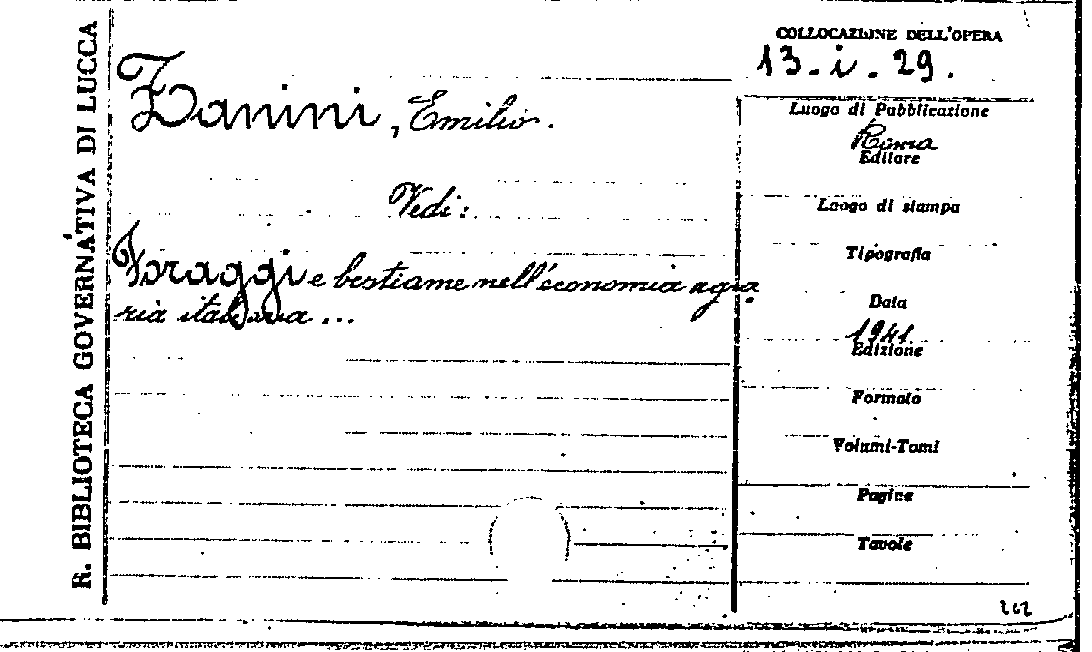 R. BIBLIOTECA GOVERNATIVA DI LUCCA
COLLOCAZIONE DELL'OPERA
13. i. 29.
Zanini, Emilio.
Vedi:
Foraggi e bestiame nell'economia agra
ria italiana ...
Luogo di Pubblicazione
Roma
Editore
Luogo di stampa
Tipografia
Data
1941
Edizione
Formato
Volumi-Tomi
Pagine
Tavole